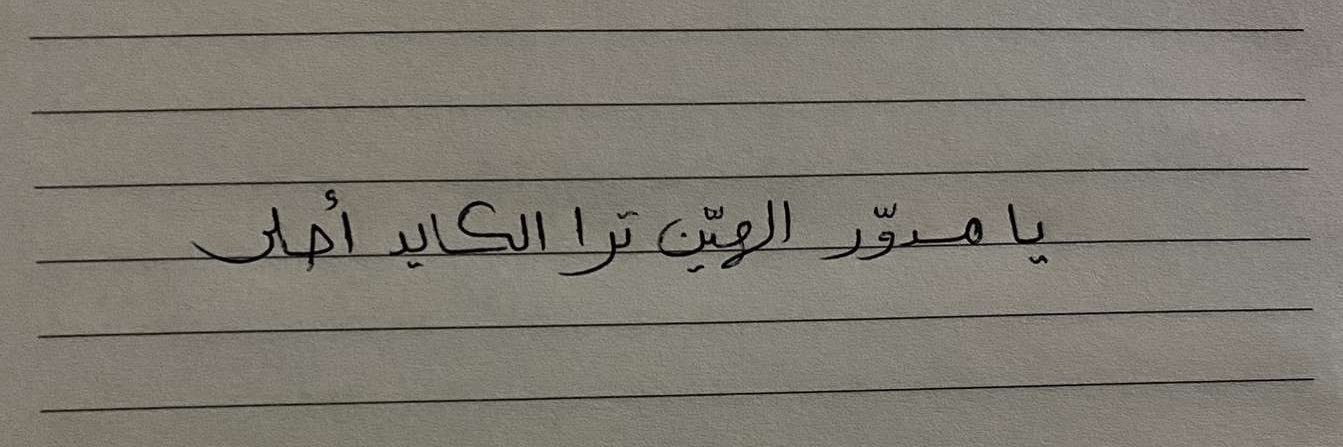 يا مدوّر الهيّن ترا الكايد أحلى